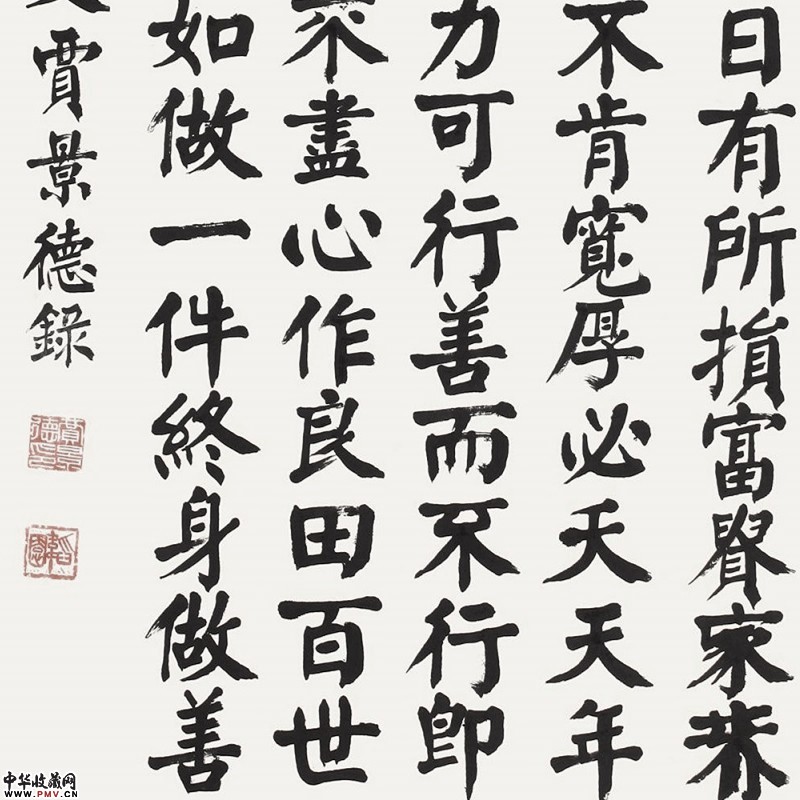 日有所損富貴家
不肯寬厚必夭天年
力可行善而不行即
不盡心作良田百世
如做一件終身做善
賈景德錄
賈景德印
韜園
中华收藏网
WWW.PMV.CN